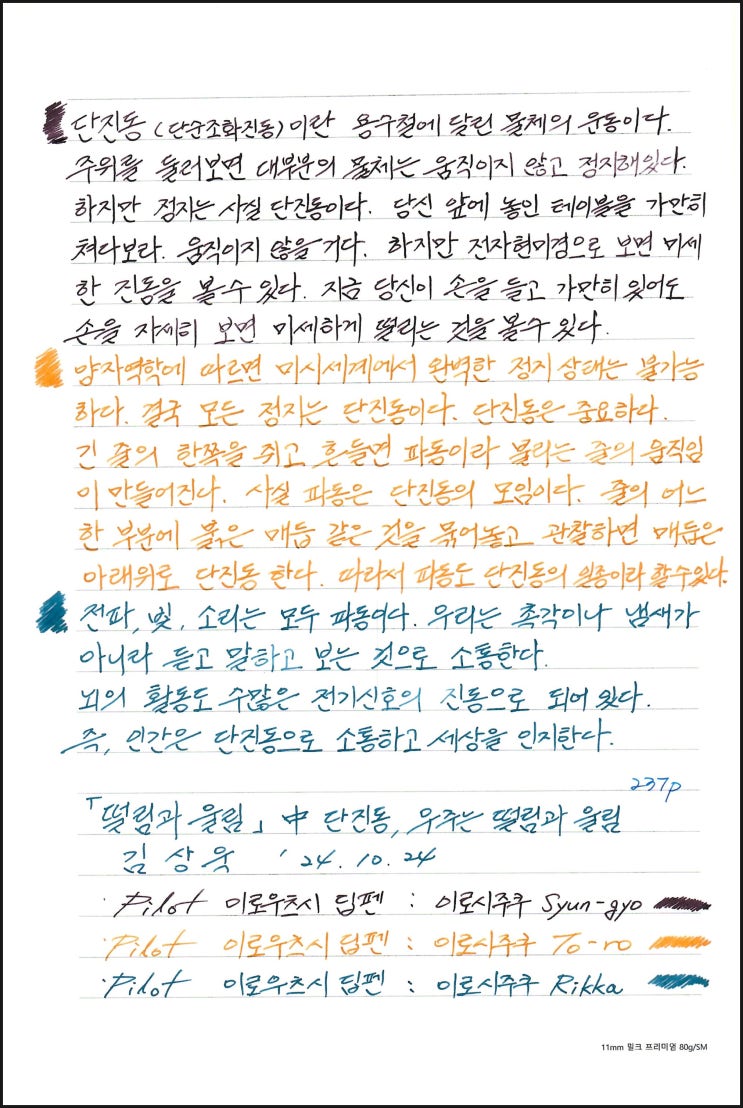 단진동 (단순조화진동)이란 용수철에 달린 물체의 운동이다.
주위를 둘러보면 대부분의 물체는 움직이지 않고 정지해있다.
하지만 정지는 사실 단진동이다. 당신 앞에 놓인 테이블을 가만히
쳐다보라. 움직이지 않을 거다. 하지만 전자현미경으로 보면 미세
한 진동을 볼 수 있다. 지금 당신이 손을 들고 가만히 있어도
손을 자세히 보면 미세하게 떨리는 것을 볼 수 있다.
양자역학에 따르면 미시세계에서 완벽한 정지 상태는 불가능
하다. 결국 모든 정지는 단진동이다. 단진동은 중요하다.
긴 줄의 한쪽을 쥐고 흔들면 파동이라 불리는 줄의 움직임
이 만들어진다. 사실 파동은 단진동의 모임이다. 줄의 어느
한 부분에 붉은 매듭 같은 것을 묶어놓고 관찰하면 매듭은
아래위로 단진동 한다. 따라서 파동도 단진동의 일종이라 할 수 있다.
전파, 빛, 소리는 모두 파동이다. 우리는 촉각이나 냄새가
아니라 듣고 말하고 보는 것으로 소통한다.
뇌의 활동도 수많은 전기신호의 진동으로 되어 있다.
즉, 인간은 단진동으로 소통하고 세상을 인지한다.
237p
「떨림과 울림」 中 단진동, 우주는 떨림과 울림
김 상 욱 '24. 10. 24
· Pilot 이로우츠시 딥펜 : 이로시주쿠 Syun-gyo
· Pilot 이로우츠시 딥펜 : 이로시주쿠 To-ro
· Pilot 이로우츠시 딥펜 : 이로시주쿠 Rikka
11mm 밀크 프리미엄 80g/SM